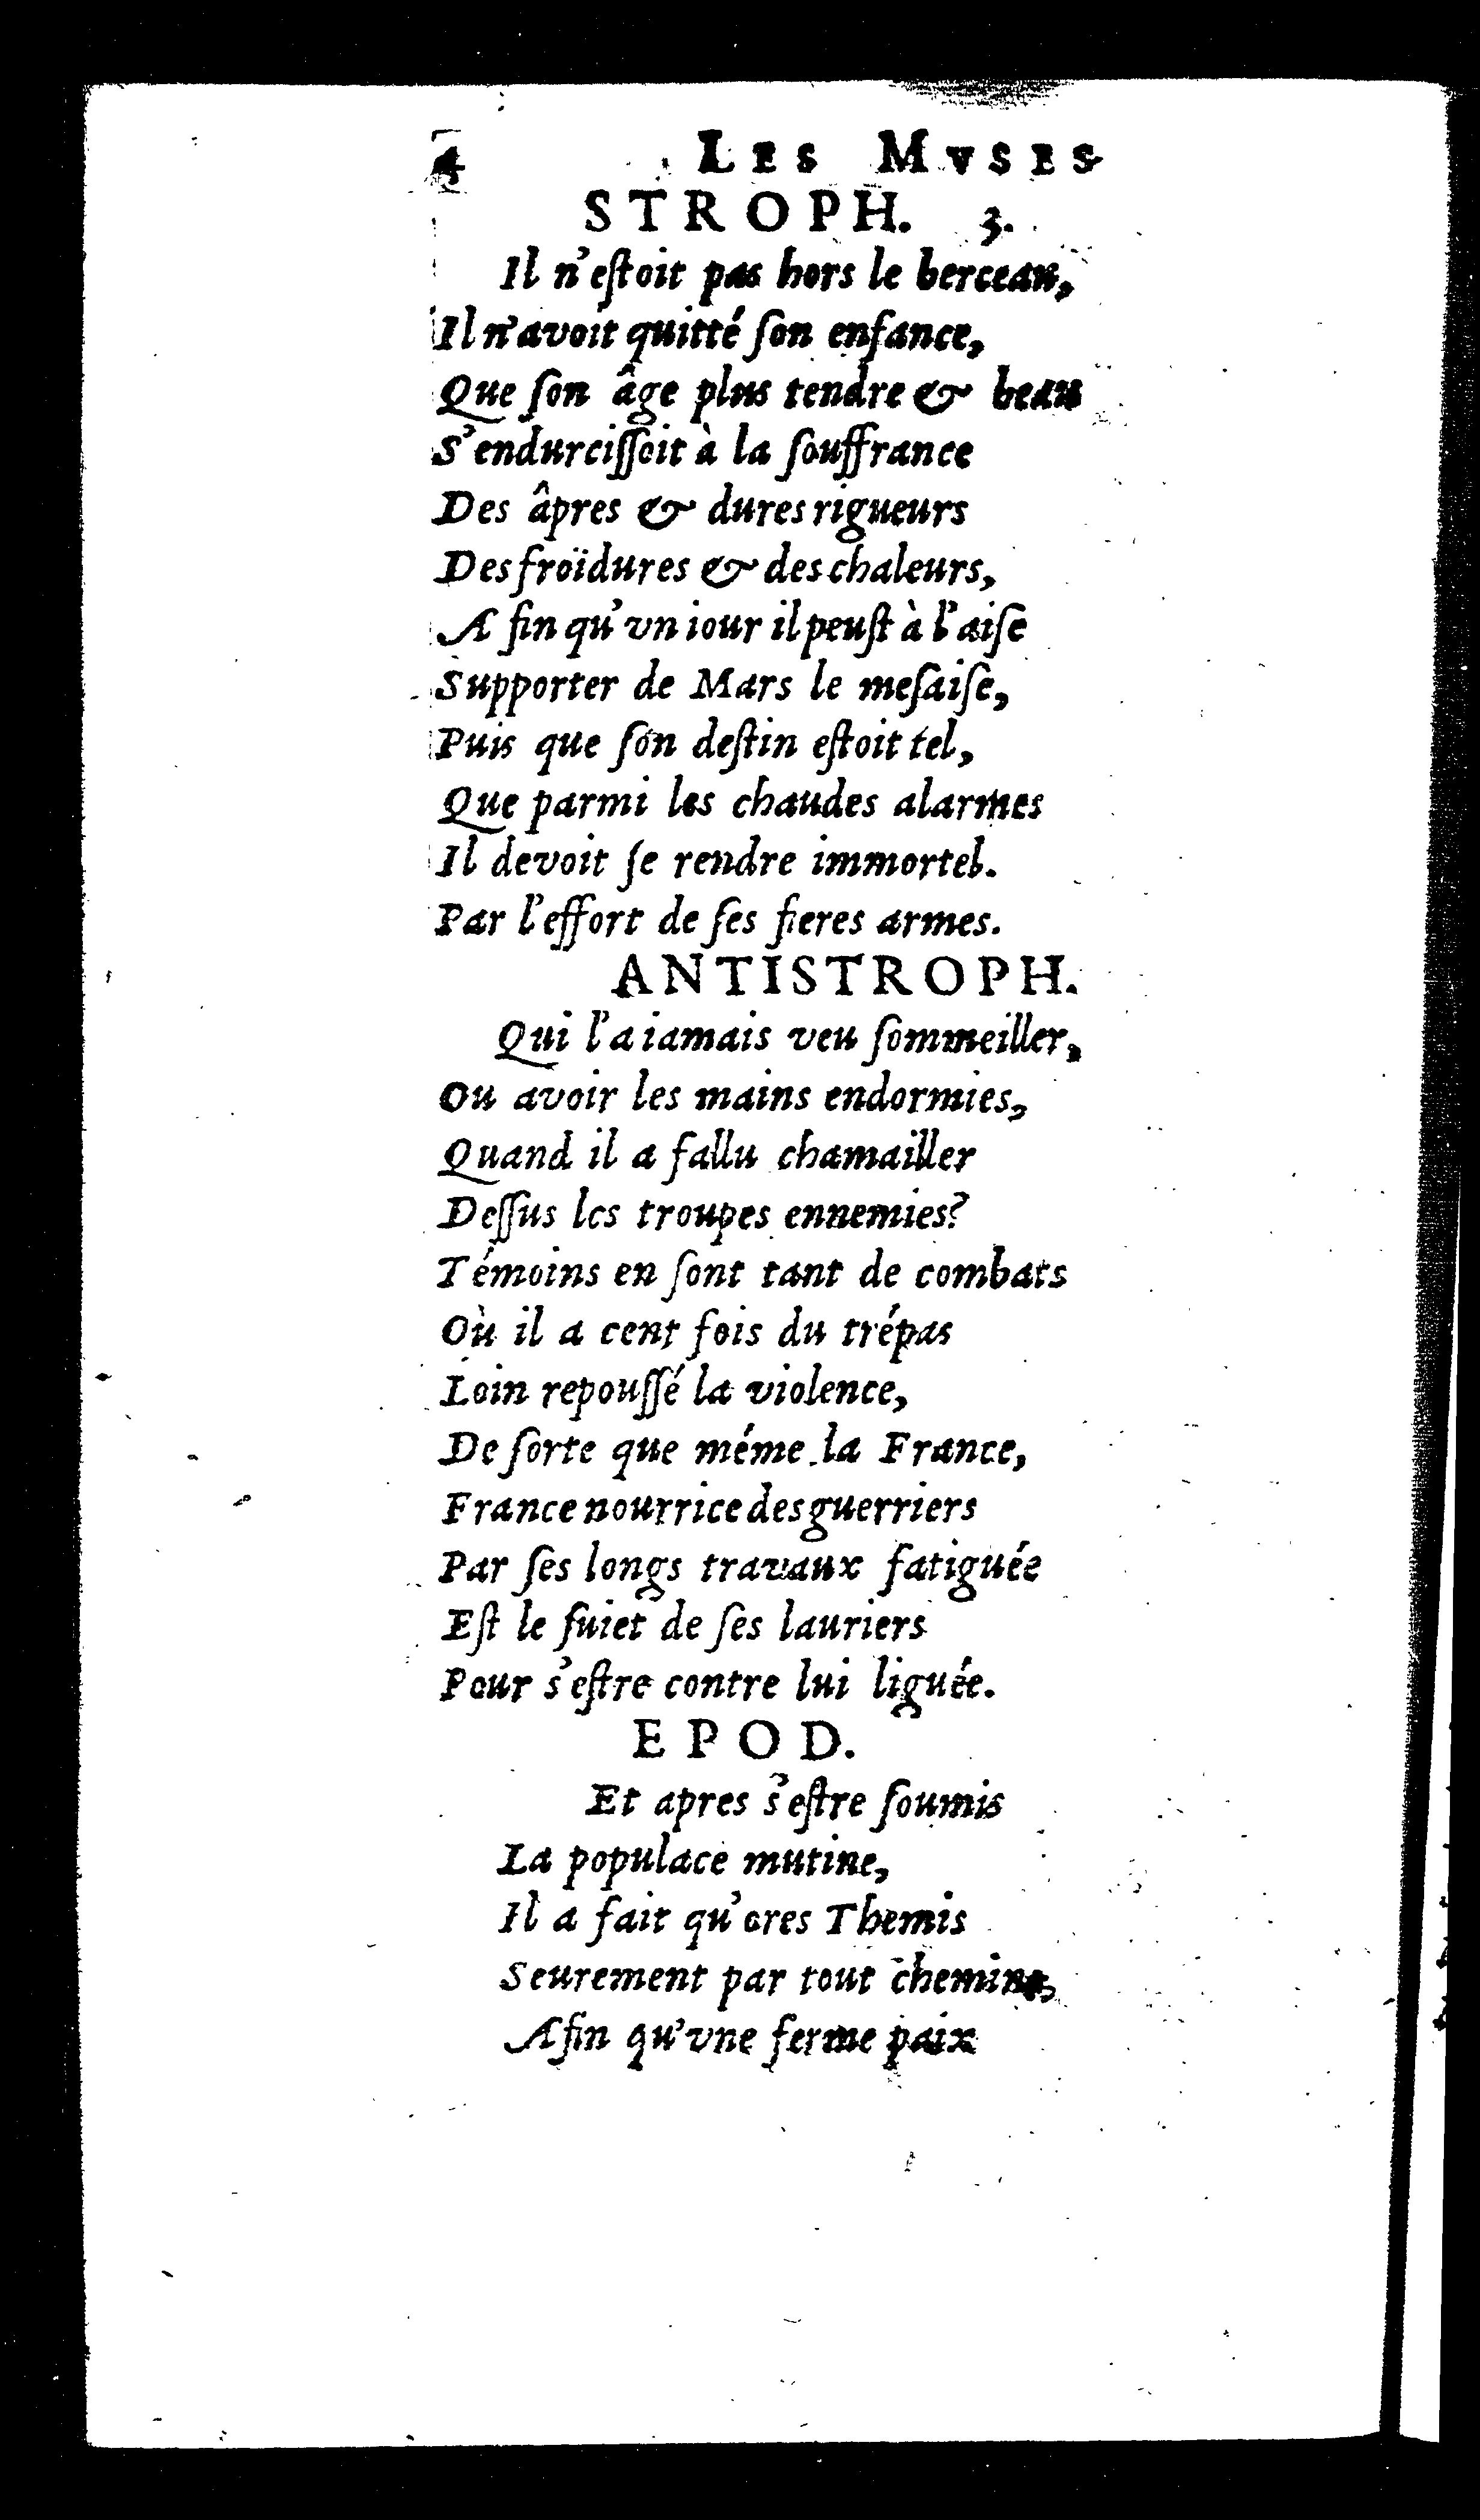 4 LES MVSES
STROPH. 3.
Il n'eſtoit pas hors le berceau,
Il n'avoit quitté ſon enfance,
Que ſon âge plus tendre & beau
S'endurciſſoit à la ſouffrance
Des âpres & dures rigueurs
Des froïdures & des chaleurs,
A fin qu'vn iour il peuſt à l'aiſe
Supporter de Mars le meſaiſe,
Puis que ſon deſtin eſtoit tel,
Que parmi les chaudes alarmes
Il devoit ſe rendre immortel.
Par l'effort de ſes fieres armes.
ANTISTROPH.
Qui l'a iamais veu ſommeiller,
Ou avoir les mains endormies,
Quand il a fallu chamailler
Deſſus les troupes ennemies?
Témoins en ſont tant de combats
Où il a cent fois du trépas
Loin repouſſé la violence,
De ſorte que méme la France,
France nourrice des guerriers
Par ſes longs travaux fatiguée
Eſt le ſuiet de ſes lauriers
Pour s'eſtre contre lui liguée.
EPOD.
Et apres s'eſtre ſoumis
La populace mutine,
Il a fait qu'ores Themis
Seurement par tout chemine,
Afin qu'vne ferme paix